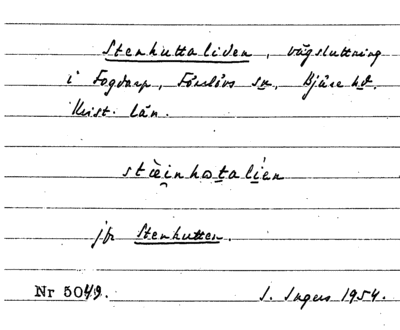 Stenhuttaliden, vägsluttning
i Fogdarp, Förslövs sn, Bjäre hd.
Krist. län.
stæ̀inhɷtali̯en
jfr Stenhutten.
Nr 5049. S. Ingers 1954.